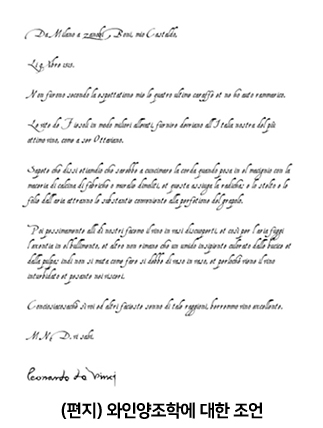 Da Milano a zanobi Boni, mio Castaldo.
Li 9. Xbre 1515.
Non furono secondo la espettatione mio le quatro ultime caraffe et ne ho auto rammarico.
Le vite de Fiesoli in modo miliori allenti, fornire devriano all'Italia nostra del più
ottimo vino, come a ser Ottaviano.
Sapete che dissi etiandio che sarebbe a cuncimare la corda quando posa in el macignio con la
maceria di calcina di fabriche o muralie dimoliti, et questa assiuga la radicha; e lo stelo e le
folie dall'aria attranno le substantie conveniente alla perfetione del grapolo.
Poi pessimamente alli dì nostri faceno il vino in vasi discuoperti, et così per l'aria fuggi
l'exentia in el bullimento, et altro non rimane che un umido insipiente culorato dalle bucce et
dalla pulpa; indi non si muta come fare si debbe di vaso in vaso, et perloché viene il vino
inturbidato et pesante nei visceri.
Conciosiacosaché si voi ed altri faciesti senno di tale raggioni, berremmo vino excellente.
M. N. D. vi salvi.
Leonardo da Vinci
(편지) 와인양조학에 대한 조언